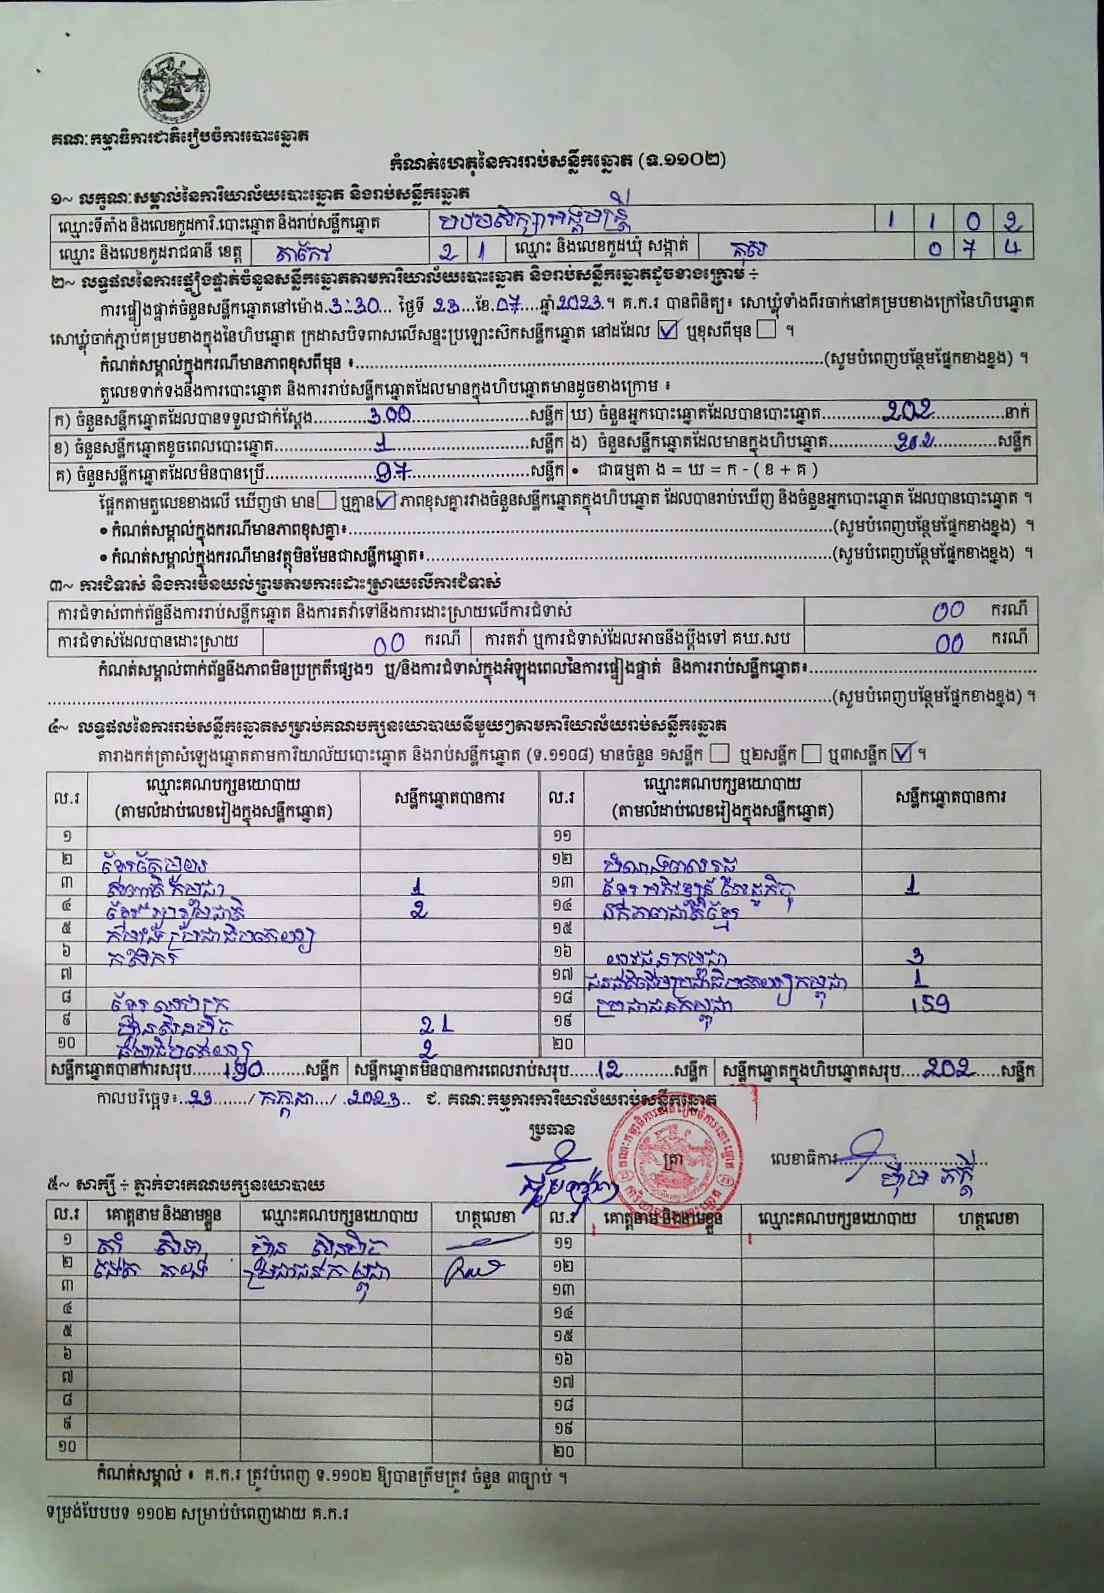 គណៈកម្មាធិការជាតិរៀបចំការបោះឆ្នោត
កំណត់ហេតុនៃការរាប់សន្លឹកឆ្នោត (ទ.១១០២)
១~ លក្ខណៈសម្គាល់នៃការិយាល័យបោះឆ្នោត និងរាប់សន្លឹកឆ្នោត
ឈ្មោះទីតាំង និងលេខកូដការិ.បោះឆ្នោត និងរាប់សន្លឹកឆ្នោត 1 1 0 2
ឈ្មោះ និងលេខកូដរាជធានី ខេត្ត តាកែវ 2 1 ឈ្មោះ និងលេខកូដឃុំ សង្កាត់ 0 7 4
២~ លទ្ធផលនៃការផ្ទៀងផ្ទាត់ចំនួនសន្លឹកឆ្នោតតាមការិយាល័យបោះឆ្នោត និងរាប់សន្លឹកឆ្នោតដូចខាងក្រោម ÷
ការផ្ទៀងផ្ទាត់ចំនួនសន្លឹកឆ្នោតនៅម៉ោង 3:30 ថ្ងៃទី 23 ខែ 07 ឆ្នាំ 2023 ។ គ.ក.រ បានពិនិត្យ៖ សោឃ្លុំទាំងពីរចាក់នៅគម្របខាងក្រៅនៃហិបឆ្នោត
សោឃ្លុំចាក់ភ្ជាប់គម្របខាងក្នុងនៃហិបឆ្នោត ក្រដាសបិទពាសលើសន្ទះប្រឡោះស៊កសន្លឹកឆ្នោត នៅដដែល ☑ ឬខុសពីមុន ☐ ។
កំណត់សម្គាល់ក្នុងករណីមានភាពខុសពីមុន ៖ (សូមបំពេញបន្ថែមផ្នែកខាងខ្នង) ។
តួលេខទាក់ទងនឹងការបោះឆ្នោត និងការរាប់សន្លឹកឆ្នោតដែលមានក្នុងហិបឆ្នោតមានដូចខាងក្រោម ៖
ក) ចំនួនសន្លឹកឆ្នោតដែលបានទទួលជាក់ស្តែង 300 សន្លឹក ឃ) ចំនួនអ្នកបោះឆ្នោតដែលបានបោះឆ្នោត 202 នាក់
ខ) ចំនួនសន្លឹកឆ្នោតខូចពេលបោះឆ្នោត 1 សន្លឹក ង) ចំនួនសន្លឹកឆ្នោតដែលមានក្នុងហិបឆ្នោត 202 សន្លឹក
គ) ចំនួនសន្លឹកឆ្នោតដែលមិនបានប្រើ 97 សន្លឹក • ជាធម្មតា ង = ឃ = ក - ( ខ + គ )
ផ្អែកតាមតួលេខខាងលើ ឃើញថា មាន ☐ ឬគ្មាន ☑ ភាពខុសគ្នារវាងចំនួនសន្លឹកឆ្នោតក្នុងហិបឆ្នោត ដែលបានរាប់ឃើញ និងចំនួនអ្នកបោះឆ្នោត ដែលបានបោះឆ្នោត ។
• កំណត់សម្គាល់ក្នុងករណីមានភាពខុសគ្នា៖ (សូមបំពេញបន្ថែមផ្នែកខាងខ្នង) ។
• កំណត់សម្គាល់ក្នុងករណីមានវត្ថុមិនមែនជាសន្លឹកឆ្នោត៖ (សូមបំពេញបន្ថែមផ្នែកខាងខ្នង) ។
៣~ ការជំទាស់ និងការមិនយល់ព្រមតាមការដោះស្រាយលើការជំទាស់
ការជំទាស់ពាក់ព័ន្ធនឹងការរាប់សន្លឹកឆ្នោត និងការតវ៉ាទៅនឹងការដោះស្រាយលើការជំទាស់ 00 ករណី
ការជំទាស់ដែលបានដោះស្រាយ 00 ករណី ការតវ៉ា ឬការជំទាស់ដែលអាចនឹងប្តឹងទៅ គឃ.សប 00 ករណី
កំណត់សម្គាល់ពាក់ព័ន្ធនឹងភាពមិនប្រក្រតីផ្សេងៗ ឬ/និងការជំទាស់ក្នុងអំឡុងពេលនៃការផ្ទៀងផ្ទាត់ និងការរាប់សន្លឹកឆ្នោត៖
(សូមបំពេញបន្ថែមផ្នែកខាងខ្នង) ។
៤~ លទ្ធផលនៃការរាប់សន្លឹកឆ្នោតសម្រាប់គណបក្សនយោបាយនីមួយៗតាមការិយាល័យរាប់សន្លឹកឆ្នោត
តារាងកត់ត្រាសំឡេងឆ្នោតតាមការិយាល័យបោះឆ្នោត និងរាប់សន្លឹកឆ្នោត (ទ.១១០៨) មានចំនួន ១សន្លឹក ☐ ឬ២សន្លឹក ☐ ឬ៣សន្លឹក ☑ ។
ល.រ ឈ្មោះគណបក្សនយោបាយ (តាមលំដាប់លេខរៀងក្នុងសន្លឹកឆ្នោត) សន្លឹកឆ្នោតបានការ ល.រ ឈ្មោះគណបក្សនយោបាយ (តាមលំដាប់លេខរៀងក្នុងសន្លឹកឆ្នោត) សន្លឹកឆ្នោតបានការ
១ ១១
២ ១២
៣ 1 ១៣ ខ្មែរអភិវឌ្ឍន៍សេដ្ឋកិច្ច 1
៤ 2 ១៤ ឯកភាពជាតិខ្មែរ
៥ ១៥
៦ កសិករ ១៦ យុវជនកម្ពុជា 3
៧ ១៧ 1
៨ ១៨ ប្រជាជនកម្ពុជា 159
៩ ហ៊្វុនស៊ិនប៉ិច 21 ១៩
១០ 2 ២០
សន្លឹកឆ្នោតបានការសរុប 190 សន្លឹក សន្លឹកឆ្នោតមិនបានការពេលរាប់សរុប 12 សន្លឹក សន្លឹកឆ្នោតក្នុងហិបឆ្នោតសរុប 202 សន្លឹក
កាលបរិច្ឆេទ៖ 23 / កក្កដា / 2023 ជ. គណៈកម្មការការិយាល័យរាប់សន្លឹកឆ្នោត
ប្រធាន
ត្រា លេខាធិការ
៥~ សាក្សី ÷ ភ្នាក់ងារគណបក្សនយោបាយ
ល.រ គោត្តនាម និងនាមខ្លួន ឈ្មោះគណបក្សនយោបាយ ហត្ថលេខា ល.រ គោត្តនាម និងនាមខ្លួន ឈ្មោះគណបក្សនយោបាយ ហត្ថលេខា
១ ហ៊្វុនស៊ិនប៉ិច ១១
២ ប្រជាជនកម្ពុជា ១២
៣ ១៣
៤ ១៤
៥ ១៥
៦ ១៦
៧ ១៧
៨ ១៨
៩ ១៩
១០ ២០
កំណត់សម្គាល់ ៖ គ.ក.រ ត្រូវបំពេញ ទ.១១០២ ឱ្យបានត្រឹមត្រូវ ចំនួន ៣ច្បាប់ ។
ទម្រង់បែបបទ ១១០២ សម្រាប់បំពេញដោយ គ.ក.រ